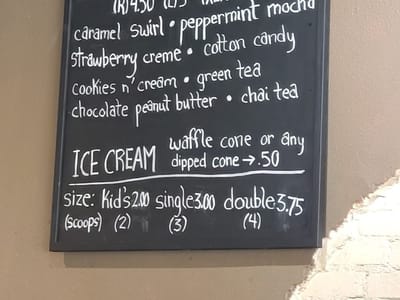 (R)4.50
caramel swirl • peppermint mocha
strawberry creme • cotton candy
cookies n' cream • green tea
chocolate peanut butter • chai tea
ICE CREAM waffle cone or any
dipped cone → .50
size: Kid's 2.00 single 3.00 double 3.75
(scoops) (2) (3) (4)